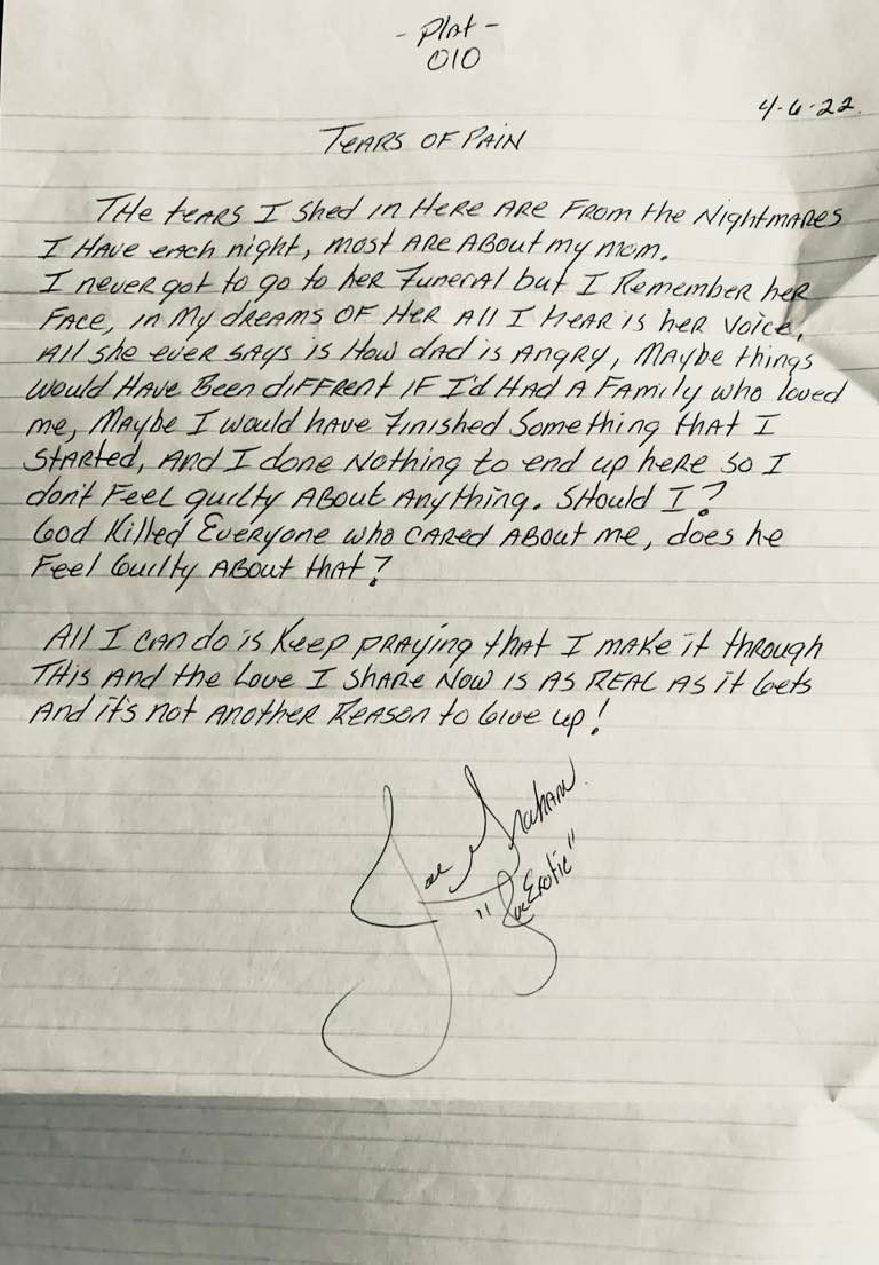 - Plat -
010
4-6-22
TEARS OF PAIN
THe teARS I Shed in HeRe ARE FRom the NightmaRes
I HAve each night, most ARE ABout my mom.
I never got to go to her Funeral but I Remember her
FAce, in My dreams OF HeR All I HeAR is her Voice,
All she ever sAys is How dad is ANgRy, MAybe things
would HAVe Been diFFrent IF I'd HAd A FAmily who loved
me, MAybe I would have Finished Something thAt I
StARted, And I done Nothing to end up here so I
don't Feel guilty ABout Anything. SHould I?
God Killed Everyone who cARed ABout me, does he
Feel Guilty ABout that?
All I cAN do is Keep pRAying that I mAKe it through
THis And the Love I SHARe Now is AS REAL AS it Gets
And it's not Another Reason to Give up!
Joe Graham
"Joe Exotic"